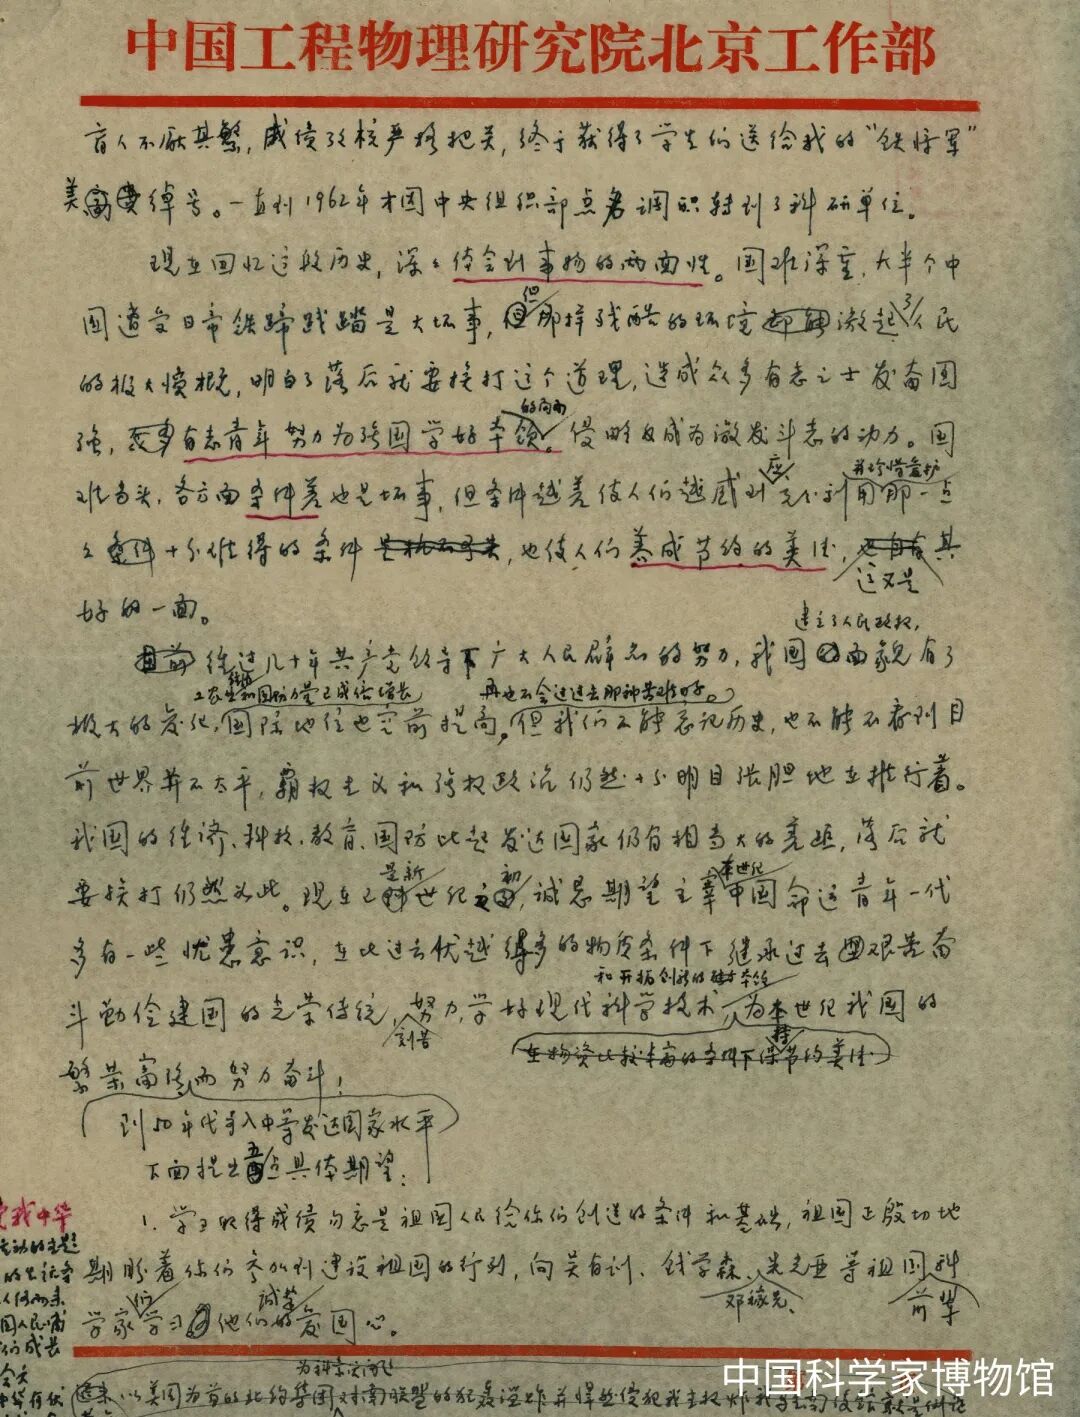 中国工程物理研究院北京工作部
育人不厌其繁，成绩考核严格把关，终于获得了学生们送给我的“铁将军”
美绰号。一直到1962年才因中央组织部点名调职转到了科研单位。
现在回忆这段历史，深深体会到事物的两面性。国难深重，大半个中
国遭受日帝铁蹄践踏是大坏事，但那样残酷的环境激起了人民
的极大愤慨，明白了落后就要挨打这个道理，造成众多有志之士发奋图
强，有志青年努力为强国学好本领的局面。侵略反成为激发斗志的动力。国
难当头，各方面条件差也是坏事，但条件越差使人们越感到应充分利用并珍惜爱护那一点
点十分难得的条件，也使人们养成节约的美德，这又是其
好的一面。
经过几十年共产党领导下广大人民群众的努力，建立了人民政权，我国面貌有了
极大的变化，工农业和国防力量已成倍增长，国际地位也空前提高，再也不会过过去那种苦难日子。但我们不能忘记历史，也不能不看到目
前世界并不太平，霸权主义和强权政治仍然十分明目张胆地在推行着。
我国的经济、科技、教育、国防比起发达国家仍有相当大的差距，落后就
要挨打仍然如此。现在已是新世纪之初，诚恳期望主宰本世纪中国命运青年一代
多有一些忧患意识，在比过去优越得多的物质条件下继承过去艰苦奋
斗勤俭建国的光荣传统，刻苦努力，学好现代科学技术和开拓创新的本领，为本世纪我国的
在物资比较丰富的条件下保持节约美德
繁荣富强而努力奋斗！
到50年代步入中等发达国家水平
下面提出五点具体期望：
1. 学习取得成绩勿忘是祖国人民给你们创造的条件和基础，祖国正殷切地
期盼着你们参加到建设祖国的行列，向吴有训、钱学森、邓稼先、朱光亚等祖国前辈科
学家们学习他们的诚挚爱国心。
中国科学家博物馆